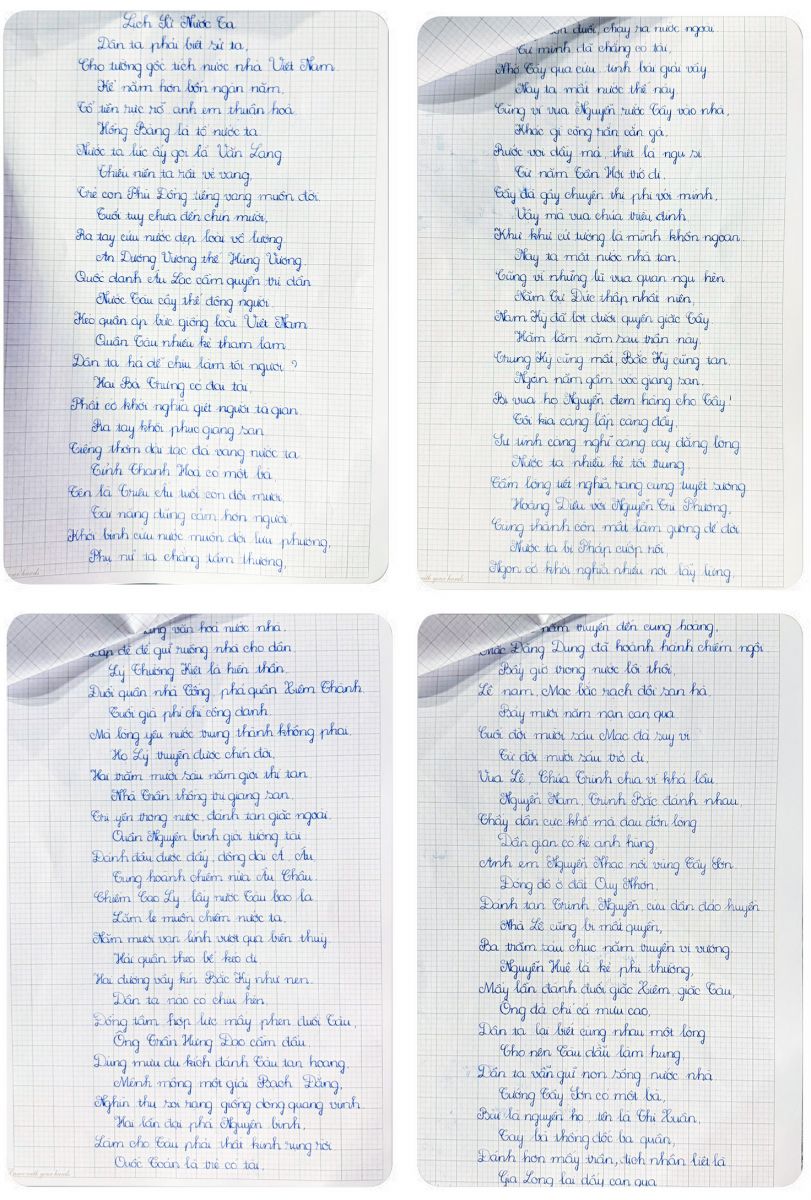 Lịch Sử Nước Ta
Dân ta phải biết sử ta,
Cho tường gốc tích nước nhà Việt Nam.
Kể năm hơn bốn ngàn năm,
Tổ tiên rực rỡ, anh em thuận hoà.
Hồng Bàng là tổ nước ta.
Nước ta lúc ấy gọi là Văn Lang
Thiếu niên ta rất vẻ vang,
Trẻ con Phù Đổng tiếng vang muôn đời.
Tuổi tuy chưa đến chín mười,
Ra tay cứu nước dẹp loài vô lương.
An Dương Vương thế Hùng Vương,
Quốc danh Âu Lạc cầm quyền trị dân.
Nước Tàu cậy thế đông người.
Kéo quân áp bức giống loài Việt Nam.
Quân Tàu nhiều kẻ tham lam.
Dân ta há dễ chịu làm tôi ngươi?
Hai Bà Trưng có đại tài,
Phất cờ khởi nghĩa giết người tà gian.
Ra tay khôi phục giang san.
Tiếng thơm dài tạc đá vàng nước ta
Tỉnh Thanh Hoá có một bà,
Tên là Triệu Ẩu tuổi con đôi mươi,
Tài năng dũng cảm hơn người,
Khởi binh cứu nước muôn đời lưu phương,
Phụ nữ ta chẳng tầm thường,
đuổi, chạy ra nước ngoài.
Tự mình đã chẳng có tài,
Nhờ Tây qua cứu, tính bài giải vây
Nay ta mất nước thế này
Cũng vì vua Nguyễn rước Tây vào nhà,
Khác gì cõng rắn cắn gà.
Rước voi dầy mả, thiệt là ngu si.
Từ năm Tân Hợi trở đi.
Tây đã gây chuyện thị phi với mình,
Vậy mà vua chúa triều đình.
Khư khư cứ tưởng là mình khôn ngoan.
Nay ta mất nước nhà tan.
Cũng vì những lũ vua quan ngu hèn
Năm Tự Đức thập nhất niên,
Nam Kỳ đã lọt dưới quyền giặc Tây.
Hăm lăm năm sau trận này.
Trung Kỳ cũng mất, Bắc Kỳ cũng tan.
Ngàn năm gấm vóc giang san,
Bị vua họ Nguyễn đem hàng cho Tây!
Tội kia càng lấp càng đầy.
Sự tình càng nghĩ càng cay đắng lòng
Nước ta nhiều kẻ tôi trung.
Tấm lòng tiết nghĩa rạng cùng tuyết sương
Hoàng Diệu với Nguyễn Tri Phương,
Cùng thành còn mất làm gương để đời
Nước ta bị Pháp cướp rồi
Ngọn cờ khởi nghĩa nhiều nơi lẫy lừng
văn hoá nước nhà.
Lập đê để giữ ruộng nhà cho dân.
Lý Thường Kiệt là hiền thần.
Đuổi quân nhà Tống, phá quân Xiêm Thành.
Tuổi già phỉ chí công danh.
Mà lòng yêu nước trung thành không phai.
Họ Lý truyền được chín đời,
Hai trăm mười sáu năm giời thì tan.
Nhà Trần thống trị giang san.
Trị yên trong nước, đánh tan giặc ngoài.
Quân Nguyên binh giỏi tướng tài
Đánh đâu được đấy, dông dài Á, Âu.
Tung hoành chiếm nửa Âu Châu.
Chiếm Cao Ly, lấy nước Tàu bao la.
Lăm le muốn chiếm nước ta,
Năm mươi vạn lính vượt qua biên thuỳ.
Hải quân theo bể kéo đi
Hai đường vây kín Bắc Kỳ như nen.
Dân ta nào có chịu hèn.
Đồng tâm hợp lực mấy phen đuổi Tàu,
Ông Trần Hưng Đạo cầm đầu.
Dùng mưu du kích đánh Tàu tan hoang.
Mênh mông một giải Bạch Đằng,
Nghìn thu soi rạng giống dòng quang vinh.
Hai lần đại phá Nguyên binh.
Làm cho Tàu phải thất kinh rụng rời
Quốc Toản là trẻ có tài,
năm truyền đến cung hoàng,
Mạc Đăng Dung đã hoành hành chiếm ngôi
Bấy giờ trong nước lôi thôi,
Lê nam, Mạc bắc rạch đôi san hà.
Bảy mươi năm nạn can qua
Cuối đời mười sáu Mạc đà suy vi
Từ đời mười sáu trở đi,
Vua Lê, Chúa Trịnh chia vì khá lâu
Nguyễn Nam, Trịnh Bắc đánh nhau,
Thấy dân cực khổ mà đau đớn lòng
Dân gian có kẻ anh hùng.
Anh em Nguyễn Nhạc nổi vùng Tây Sơn.
Đóng đô ở đất Quy Nhơn,
Đánh tan Trịnh, Nguyễn, cứu dân đảo huyền
Nhà Lê cũng bị mất quyền,
Ba trăm sáu chục năm truyền vị vương.
Nguyễn Huệ là kẻ phi thường,
Mấy lần đánh đuổi giặc Xiêm, giặc Tàu,
Ông đà chí cả mưu cao,
Dân ta lại biết cùng nhau một lòng
Cho nên Tàu dẫu làm hung,
Dân ta vẫn giữ non sông nước nhà
Tướng Tây Sơn có một bà,
Bùi là nguyên họ, tên là Thị Xuân,
Tay bà thống đốc ba quân,
Đánh hơn mấy trận, địch nhân liệt là
Gia Long lại dấy can qua